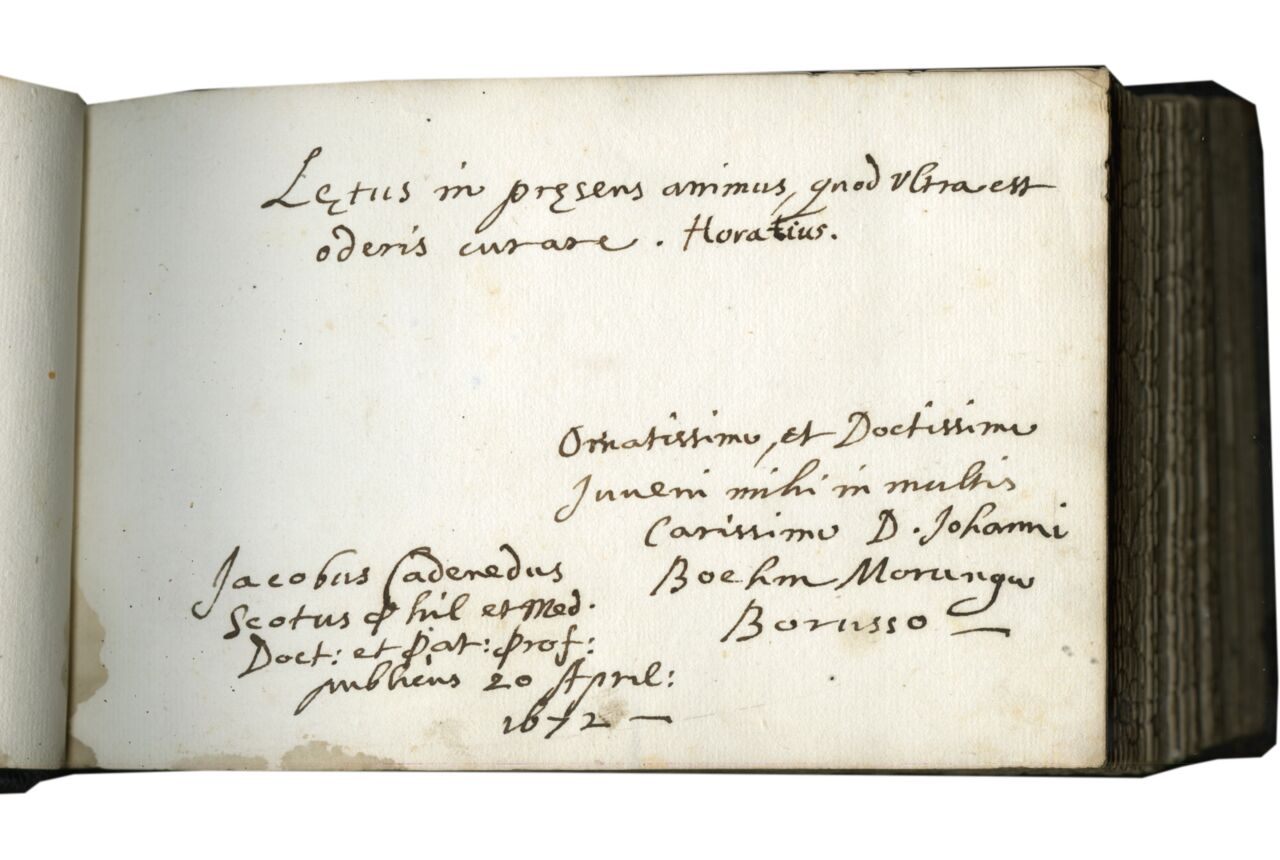 Lętus in pręsens animus, quod ultra est
oderis curare. Horatius.
Ornatissimo, et Doctissimo
Juveni mihi in multis
Carissimo D. Johanni
Boehm Morunga
Borusso
Jacobus Cadenedus
Scotus Phil et Med.
Doct: et Pat: Prof:
publicus 20 April:
1672